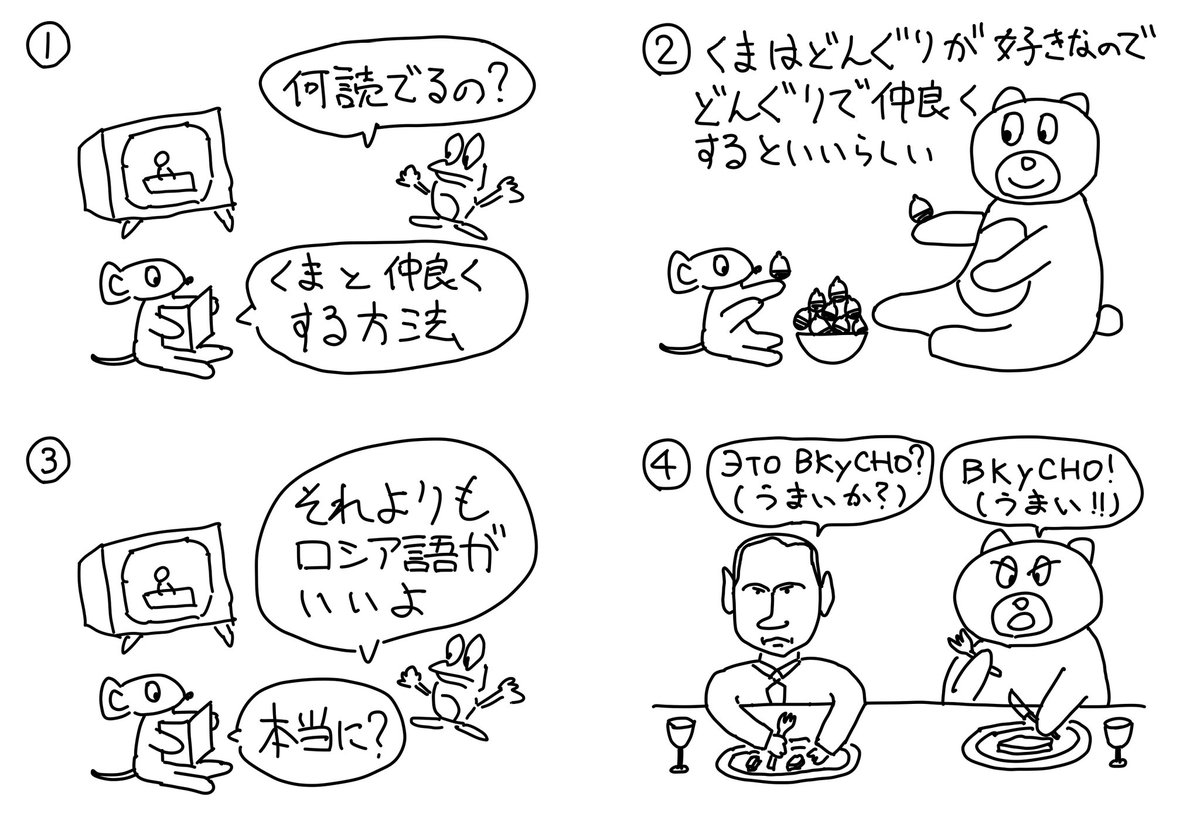 ①
何読でるの?
くまと仲良く
する方法
② くまはどんぐりが好きなので
どんぐりで仲良く
するといいらしい
③
それよりも
ロシア語が
いいよ
本当に?
④
ЭТО ВКуСНО?
(うまいか?)
ВКуСНО!
(うまい!!)